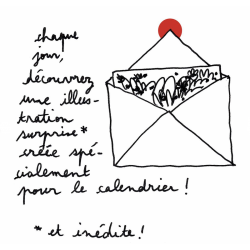 chaque
jour,
découvrez
une illus-
tration
surprise*
créée spé-
cialement
pour le calendrier !
* et inédite !